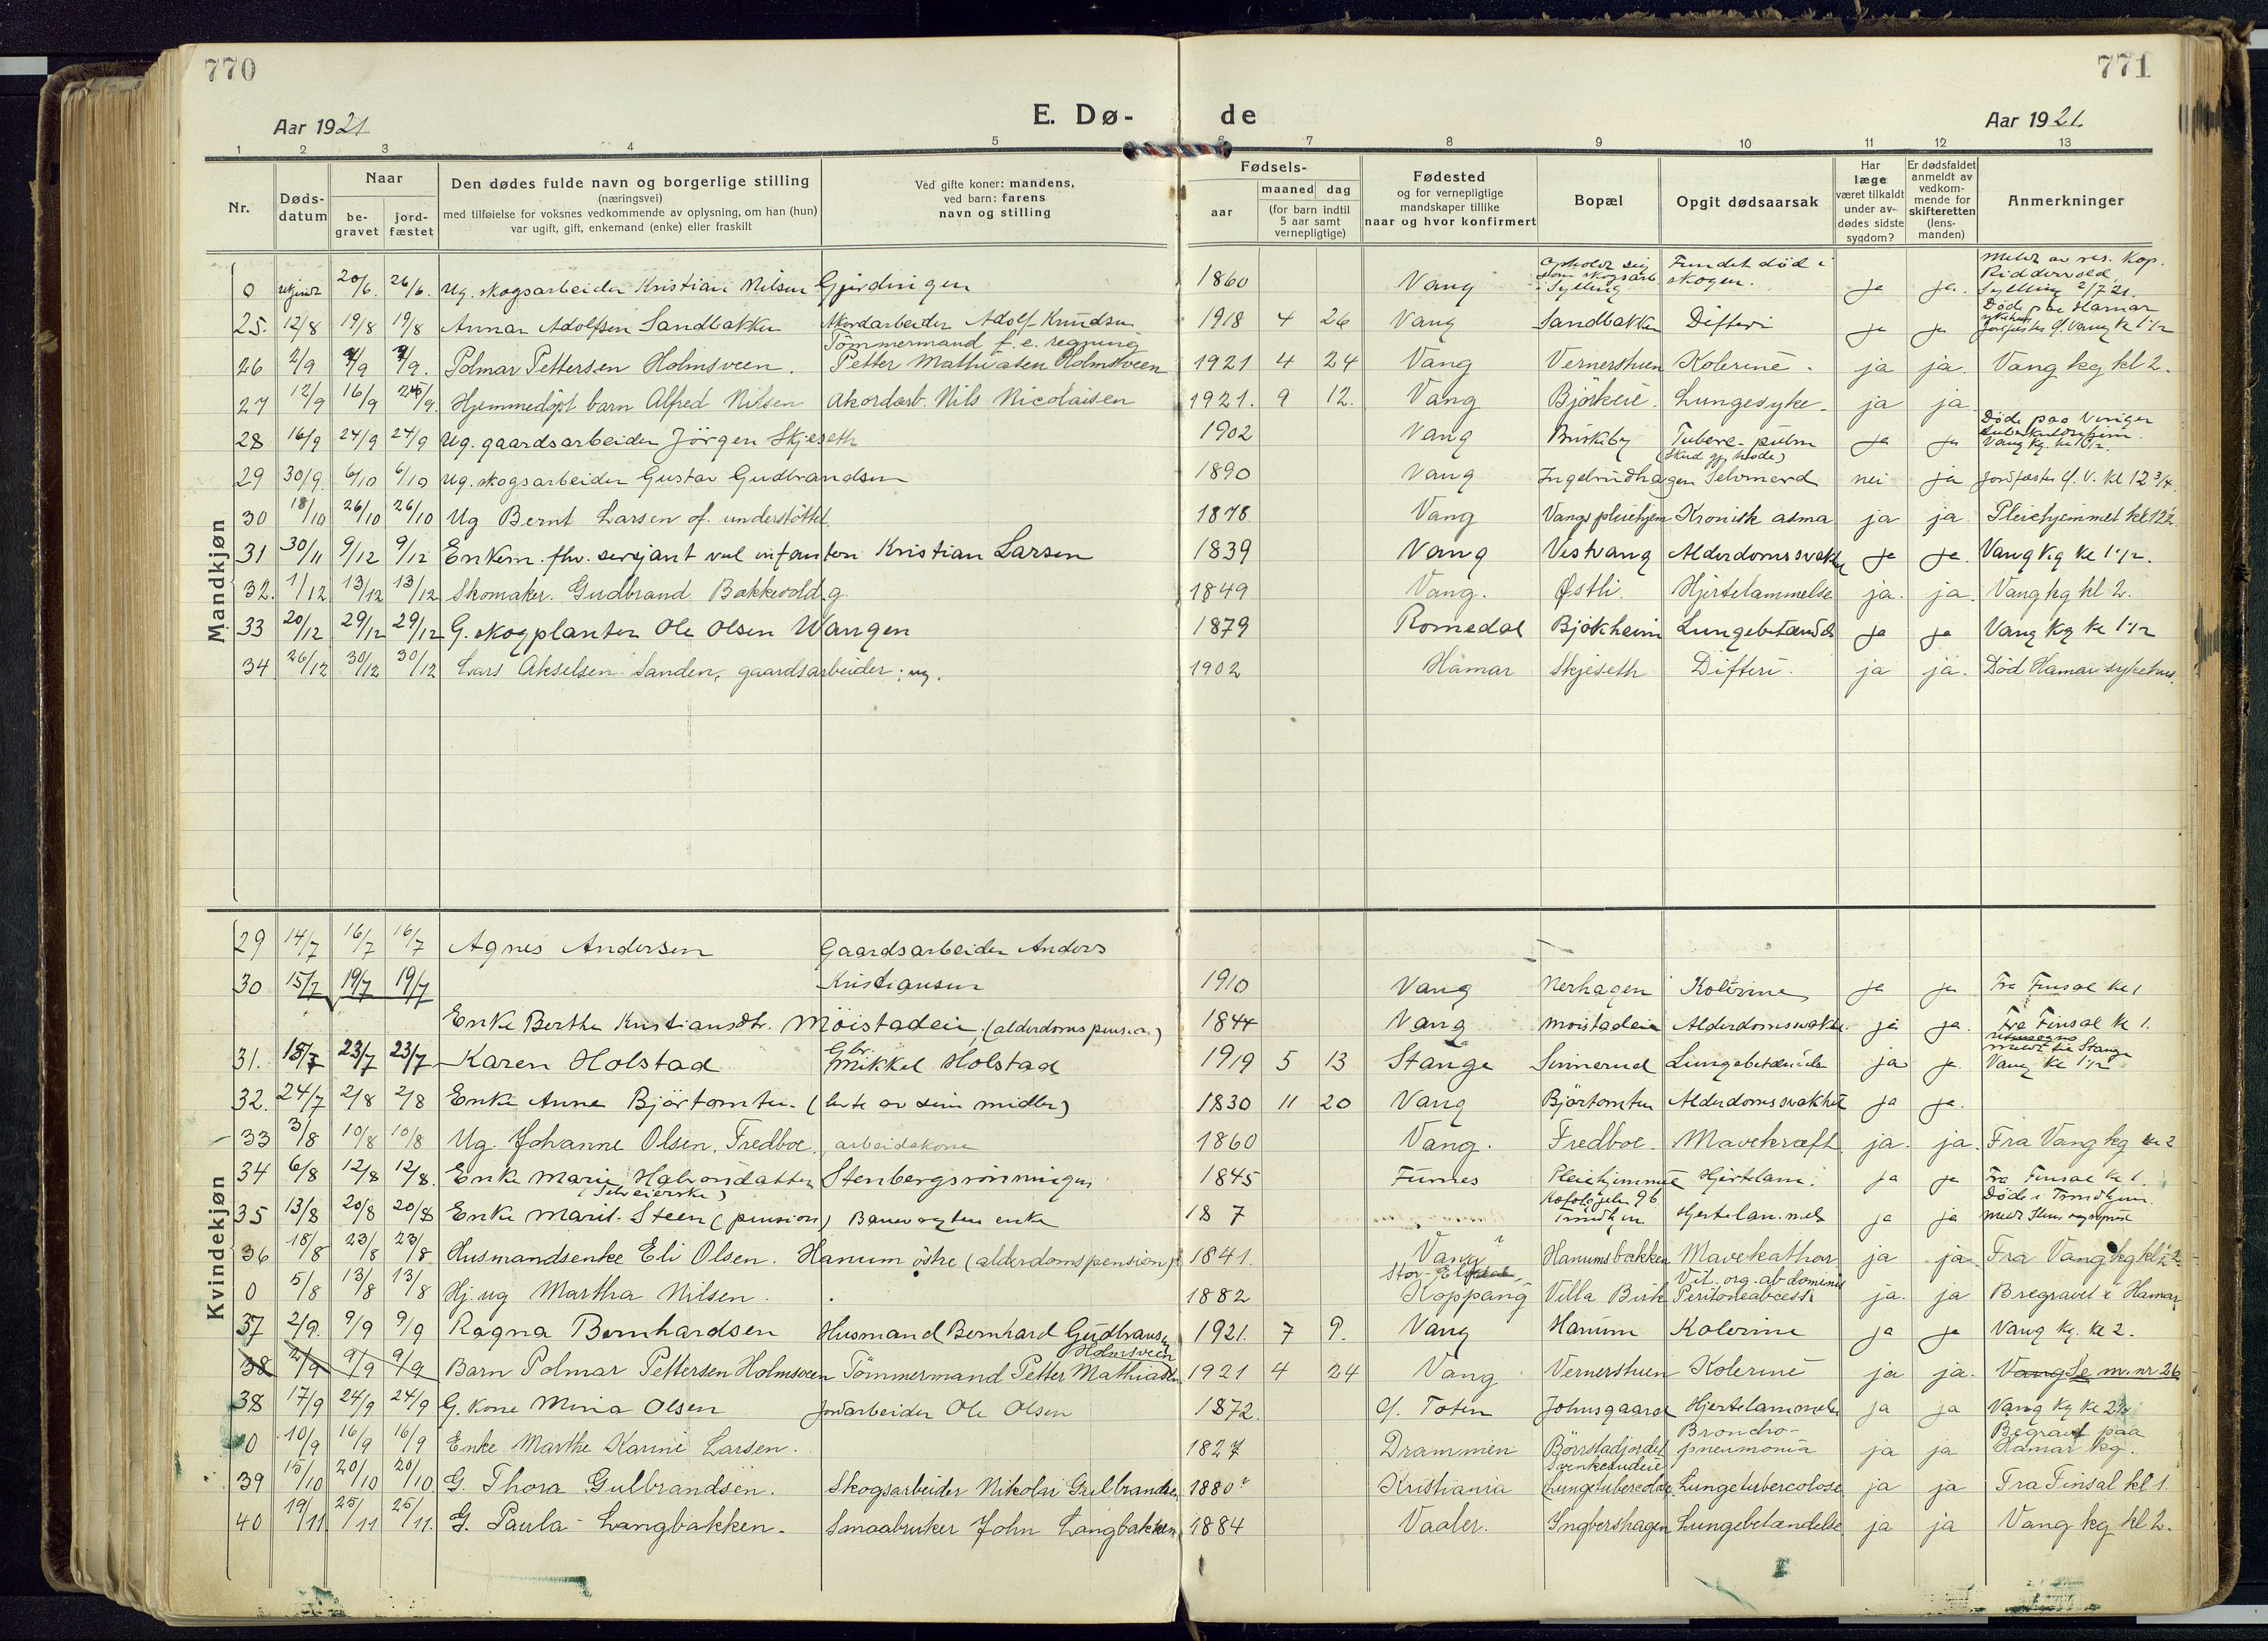 770
771
Aar 1921
E. Dø-
de
Aar 1921.
1 2 3 4 5 6 7 8 9 10 11 12 13
Nr.
Døds-
datum
Naar
be-
gravet
jord-
fæstet
Den dødes fulde navn og borgerlige stilling
(næringsvei)
med tilføielse for voksnes vedkommende av oplysning, om han (hun)
var ugift, gift, enkemand (enke) eller fraskilt
Ved gifte koner: mandens,
ved barn: farens
navn og stilling
Fødsels-
aar
maaned dag
(for barn indtil
5 aar samt
vernepligtige)
Fødested
og for vernepligtige
mandskaper tillike
naar og hvor konfirmert
Bopæl
Opgit dødsaarsak
Har
læge
været tilkaldt
under av-
dødes sidste
sygdom?
Er dødsfaldet
anmeldt av
vedkom-
mende for
skifteretten
(lens-
manden)
Anmerkninger
Mandkjøn
0 ukjendt 20/6. 26/6. Ug. skogsarbeider Kristian Nilsen Gjerdringen 1860 Vang Opholdt sig som skogsarb. i Sylling Fundet død i skogen. ja ja. Meldt av res. kap. Riddervold Sylling 2/7 21.
25. 12/8 19/8 19/8 Annar Adolfsen Sandbakken Akordarbeider Adolf Knudsen 1918 4 26 Vang Sandbakken Difteri ja ja Døde paa Hamar sykehus Jordfæstes f. Vang kl 1 1/2
26 2/9 9/9 9/9. Polmar Pettersen Holmsveen. Tömmermand f. e. regning Petter Mathiasen Holmsveen 1921 4 24 Vang Vernershuen Kolerine. ja ja. Vang kg kl 2.
27 12/9 16/9 25/9. Hjemmedöpt barn Alfred Nilsen Akordarb. Nils Nicolaisen 1921. 9 12. Vang Björkeie. Lungesyke. ja ja
28 16/9 24/9 24/9 Ug. gaardsarbeider Jörgen Skjeseth 1902 Vang Buskeby Tuberc. pulm ja ja Døde paa Vinger tuberkulosehjem. Vang kg. kl 1 1/2.
29 30/9. 6/10 6/10 Ug. skogsarbeider Gustav Gudbrandsen 1890 Vang Ingebrudhagen (Skud gj. hode) Selvmord nei ja Jordfæstes f. V. kl 12 3/4.
30 18/10 26/10 26/10 Ug Bernt Larsen of. understöttet. 1878. Vang Vangs pleiehjem Kronisk asma ja ja Pleiehjemmet kl 12 1/2
31 30/11 9/12 9/12 Enkem. fhv. sersjant ved infanteri Kristian Larsen 1839 Vang Vestvang Alderdomssvakhet ja ja. Vang kg kl 1 1/2.
32. 1/12 13/12 13/12 Skomaker. Gudbrand Bakkevold. g. 1849 Vang. Østli. Hjertelammelse ja. ja. Vang kg kl 2.
33 20/12 29/12 29/12 G. skogplanter Ole Olsen Wangen 1879 Romedal Bjökheim Lungebetændelse ja ja Vang kg kl 1 1/2
34 26/12 30/12 30/12 Lars Akselsen Sanden, gaardsarbeider; ug. 1902 Hamar Skjeseth Difteri. ja ja. Død Hamar sykehus.
Kvindekjøn
29 14/7 16/7 16/7 Agnes Andersen Gaardsarbeider Anders Kristiansen 1910 Vang Nerhagen Kolerine ja ja Fra Finsal kl 1
30 15/7 19/7 19/7 Enke Berthe Kristiansdtr. Möistadeie, (alderdomspension) 1844 Vang Moistadeie Alderdomssvakhet. ja ja. Fra Finsal kl 1.
31. 18/7 23/7 23/7 Karen Holstad Gbr. Mikkel Holstad 1919 5 13 Stange Sinnerud Lungebetændelse ja ja meldt til Stange Vang kl 1 1/2
32. 24/7 2/8 2/8 Enke Anne Björtomten. (levte av sine midler) 1830 11 20 Vang Björtomten Alderdomssvakhet ja ja.
33 3/8 10/8 10/8 Ug. Johanne Olsen, Fredboe, arbeidskone 1860 Vang. Fredboe. Mavekræft ja. ja. Fra Vang kg kl 2
34 6/8 12/8 12/8. Enke Marie Halvorsdatter Stenbergsrönningen 1845 Furnes Pleiehjemmet Hjertelam. ja ja Fra Finsal kl 1.
35 13/8 20/8 20/8 Enke Marit. Steen (Selveierske) (pension) Banevogter enke 18 7 Trondhjem Hjertelammelse ja ja Døde i Trondhjem.
36 18/8 23/8 23/8. Husmandsenke Eli Olsen. Hanum östre (alderdomspension). 1841. Vang Hanumsbakken Mavekathar ja ja. Fra Vang kg kl 2.
0 5/8 13/8 13/8 Hj. ug Martha Nilsen. 1882 Stor-Elvdal, Koppang Villa Birk Vit. org. abdominis Peritoneabcess ja. ja Bregravet i Hamar
37 2/9. 9/9 9/9 Ragna Bernhardsen Husmand Bernhard Gudbransen 1921. 7 9. Vang Hanum Kolerine ja ja Vang kg. kl 2.
38 2/9 9/9 9/9 Barn Polmar Pettersen Holmsveen Tömmermand Petter Mathiasen Holmsveen 1921 4 24 Vang Vernershuen Kolerine ja ja. Vang Se m. nr 26
38 17/9 24/9 24/9 G. Kone Mina Olsen Jordarbeider Ole Olsen 1872. Ø. Toten Johnsgaard Hjertelammelse ja ja Vang kg kl 2 1/2
0 10/9 16/9 16/9 Enke Marthe Karine Larsen. 1827 Drammen Börrstadjordet Broncho-pneumonia ja ja Begravet paa Hamar kg.
39 15/10 20/10 20/10. G. Thora Gulbrandsen. Skogsarbeider Nikolai Gulbrandsen 1880 Kristiania (Lungetubercolose Lungetubercolose ja ja Fra Finsal kl 1.
40 19/11 25/11 25/11. G. Paula Langbakken. Smaabruker John Langbakken, 1884 Vaaler. Yngvershagen Lungebetændelse ja ja Vang kg kl 2.